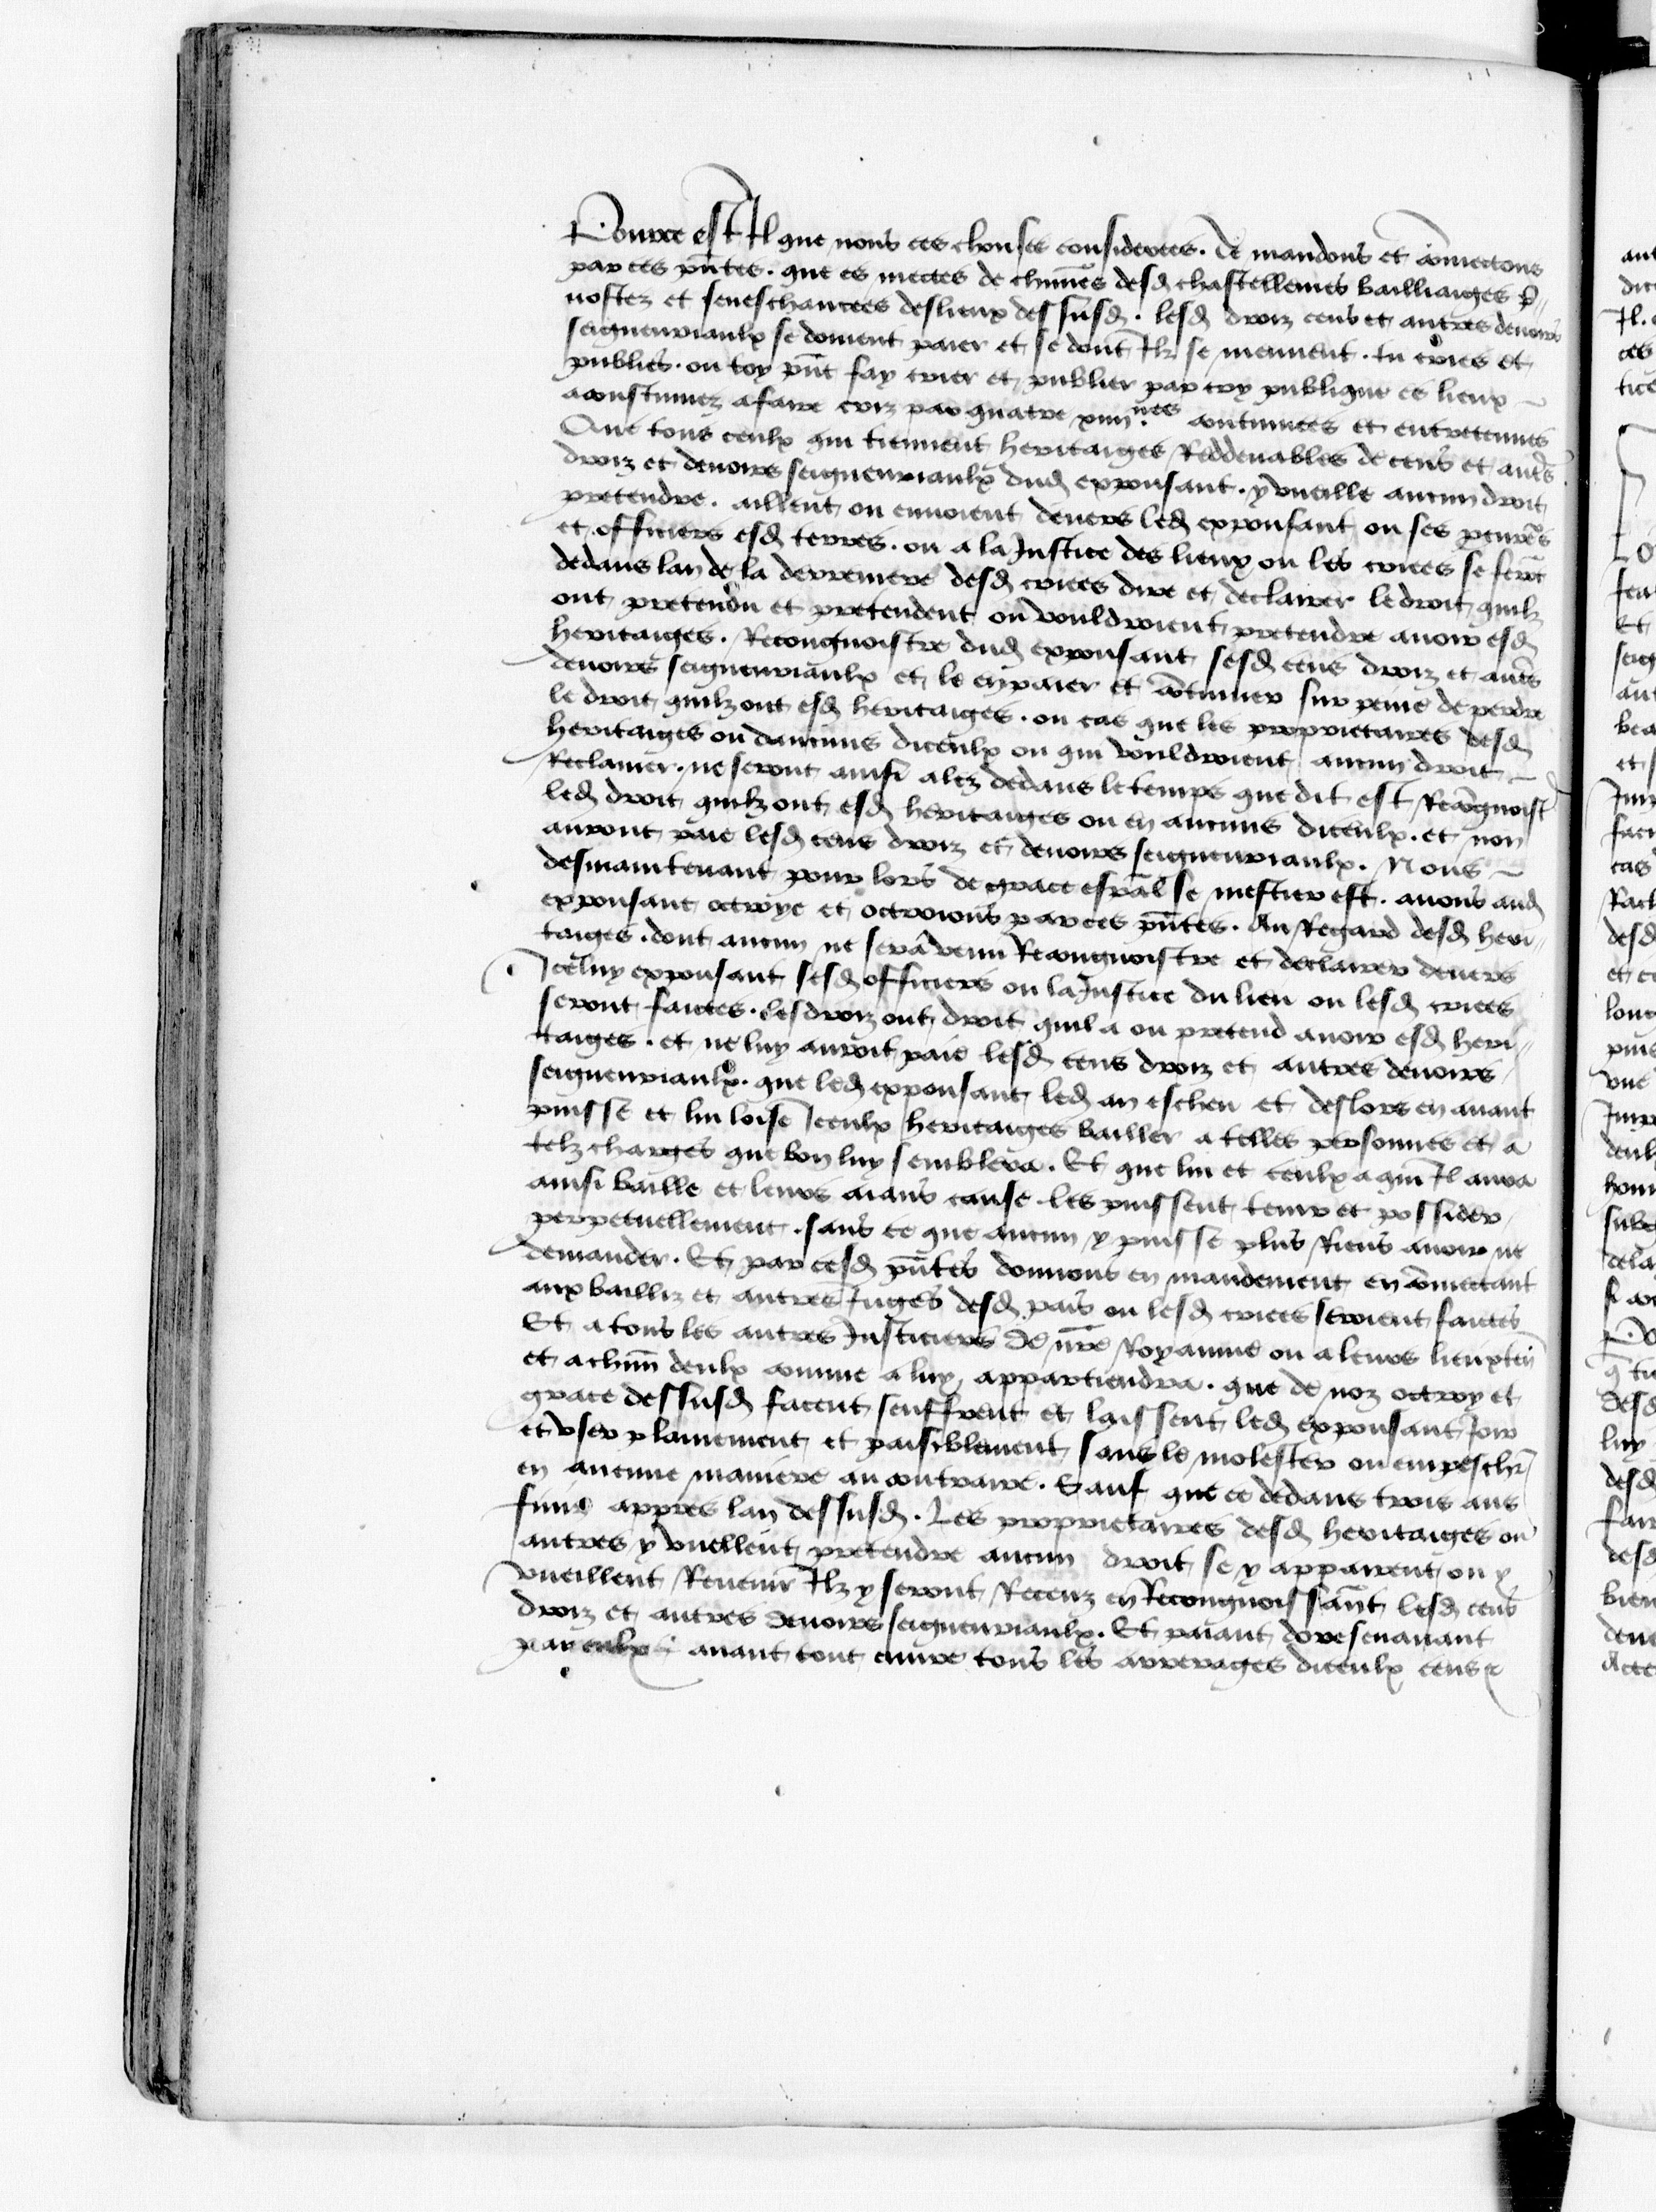 Pource est Il que nous ces chouses considerees. Te mandons et cōmectons
par ces pn̄tes. que es mectes de chm̄es desd chastellenies bailliaiges p̄-
uostez et seneschaucees deslieux dessusd. lesd droiz cens et autres deuoirs
seigneuriaulx se doiuent paier et se dont Ilz se meuuent. tu cries et
publies. ou toy pn̄t fay crier et publier par cry publique es lieux
acoustumez afaire criz par quatre xiiii.nes continuees et entretenues
Que tous ceulx qui tiennent heritaiges Reddeuables de cens et aut̄s
droiz et deuoirs seigneuriaulx dud exponsant. y vueille aucun droit
pretendre. aillent ou enuoient deuers led exponsant ou ses pcureᵃs
et officiers esd terres. ou a la Justice des lieux ou les criees se fer̄ōt
dedans lan de la derreniere desd criees dire et declairer le droit quilz
ont pretendu et pretendent ou vouldroient pretendre auoir esd
heritaiges. Recongnoistre dud exponsant sesd cens droiz et aut̄s
deuoirs seigneuriaulx et le en paier et cōtinuer sur peine de perdre
le droit quilz ont esd heritaiges. ou cas que les proprietaires desd
heritaiges ou daucuns diceulx ou qui vouldroient aucun droit
Reclamer. ne seront ainsi alez dedans le temps que dit est Recōgnoist
led droit quilz ont esd heritaiges ou en aucuns diceulx. et non
auront paie lesd cens droiz et deuoirs seigneuriaulx. Nous
desmaintenant pour lors de grace esp̄al se mestier est. auons aud
exponsant octroye et octroions par ces pn̄tes. Au Regard desd heri-
taiges. dont aucun ne sera venu Recongnoistre et declairer deuers
Iceluy exponsant sesd officiers ou la Justice du lieu ou lesd criees
seront faictes. lesdroiz ont droit quil a ou pretend auoir esd heri-
taiges. et ne luy auroit paie lesd cens droiz et autres deuoirs
seigneuriaulx. que led exponsant led an escheu et deslors en auant
puisse et lui loise Iceulx heritaiges bailler a telles personnes et a
telz charges que bon luy semblera. Et que lui et ceulx a qui Il aura
ainsi baille et leurs aians cause les puissent tenir et possider
perpetuellement. sans ce que aucun y puisse plus Riens auoir ne
demander. Et par cesd pn̄tes donnons en mandement en cōmectant
aux bailliz et autres Juges desd pais ou lesd criees seroient faictes
Et a tous les autres Justiciers de nr̄e Royaume ou a leurs lieuxten̄
et a chm̄ deulx comme a luy appartiendra. que de noz octroy et
grace dessusd facent seuffrent et laissent led exponsant Joir
et vser plainement et paisiblement sans le molester ou empeschr̄
en aucune maniere au contraire. Sauf que ce dedans trois ans
finiz appres lan dessusd. Les proprietaires desd heritaiges ou
autres y vuellent pretendre aucun droit se y apparent ou y
vueillent Reuenir Ilz y seront Receuz en Recongnoissant lesd cens
droiz et autres deuoirs seigneuriaulx. Et paiant doresenauant
par eulx auant tout euure tous les arrerages diceulx cens